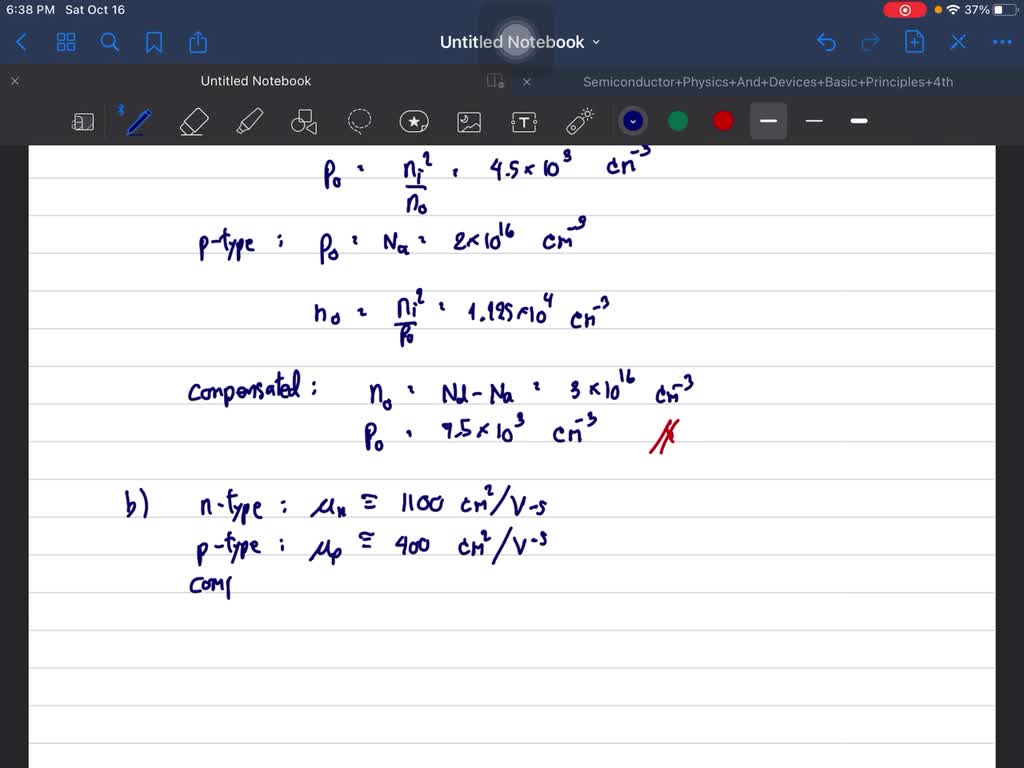 6:38 PM Sat Oct 16 37%
Untitled Notebook
Untitled Notebook Semiconductor+Physics+And+Devices+Basic+Principles+4th
P₀ = nᵢ²/n₀ = 4.5 × 10³ cm⁻³
p-type : P₀ = Nₐ = 2×10¹⁶ cm⁻³
n₀ = nᵢ²/P₀ = 1.125×10⁴ cm⁻³
Compensated : n₀ = Nd - Na = 3 × 10¹⁶ cm⁻³
P₀ = 7.5 × 10³ cm⁻³
b) n-type : μₙ ≅ 1100 cm²/V-s
p-type : μₚ ≅ 400 cm²/V-s
comp